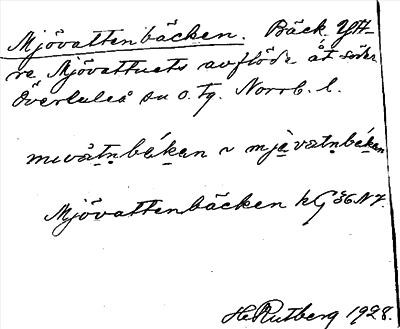 Mjövattenbäcken. Bäck. Ytt-
re Mjövattnets avflöde åt söder
Överluleå sn o. tg. Norrb. l.
mɪvåtn̥bäkan ~ mjèvatn̥bäkan
Mjövattenbäcken kG 36 N7.
H. Rutberg 1928.